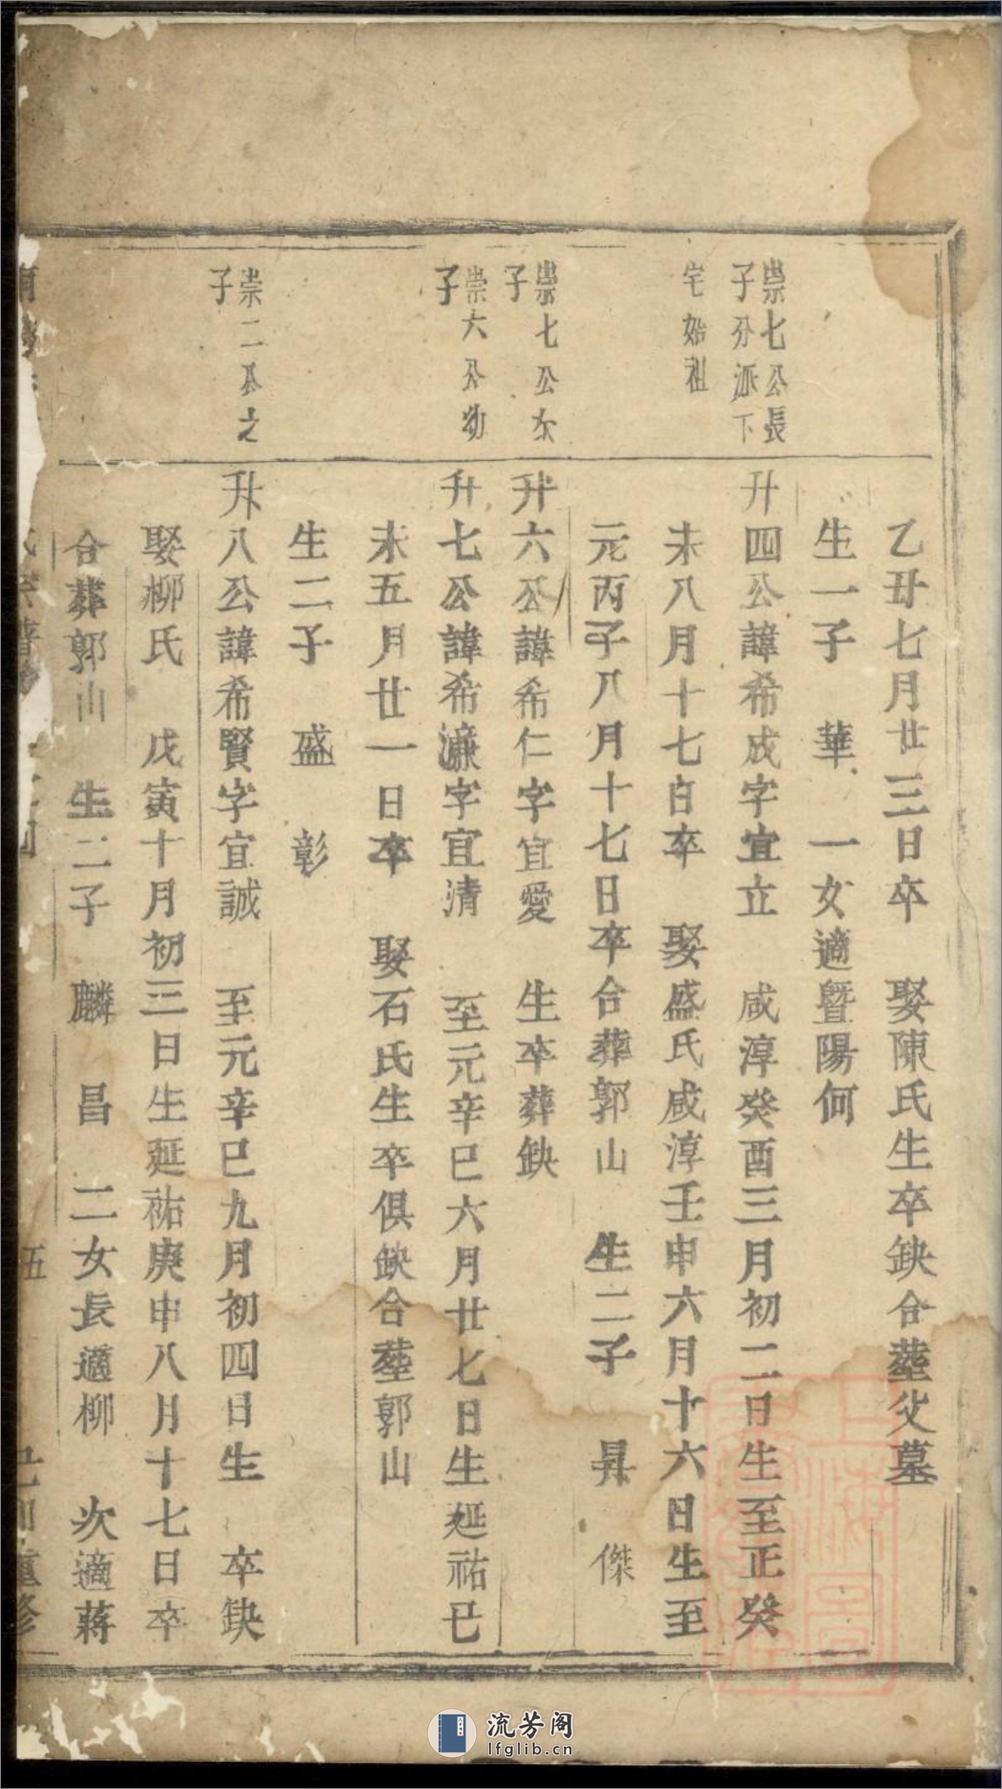 乙丑七月廿三日卒　娶陳氏生卒缺合塟父墓
生一子　華　一女適曁陽何
崇七公長
子分派下
升四公諱希成字宜立　咸淳癸酉三月初二日生至正癸
宅始祖
未八月十七日卒　娶盛氏咸淳壬申六月十六日生至
元丙子八月十七日卒合葬郭山　生二子　昇　傑
崇七公次
子
升六公諱希仁字宜愛　生卒葬缺
崇六公幼
子
升七公諱希濂字宜清　至元辛巳六月廿七日生延祐已
未五月廿一日卒　娶石氏生卒俱缺合塟郭山
生二子　盛　彰
崇二公之
子
升八公諱希賢字宜誠　至元辛巳九月初四日生　卒缺
娶柳氏　戊寅十月初三日生延祐庚申八月十七日卒
合葬郭山　生二子　麟　昌　二女長適柳　次適蔣
伍
重修
流芳阁
lfglib.cn